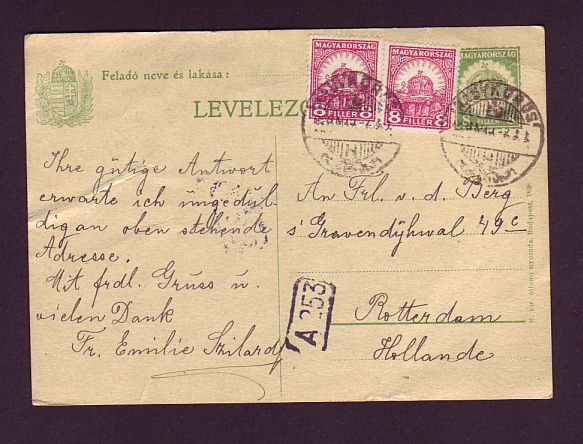 Feladó neve és lakása:
MAGYARORSZÁG
8 FILLÉR 8
MAGYARORSZÁG
8 FILLÉR 8
LEVELEZŐ
Ihre gütige Antwort
erwarte ich ungedul-
dig an oben stehende
Adresse.
Mit frdl. Gruss u.
vielen Dank
Fr. Emilie Szilard
An Frl. v. d. Berg
s'Gravendijkwal 49c
Rotterdam
Hollande
A 253
M. kir. állami nyomda. Budapest.